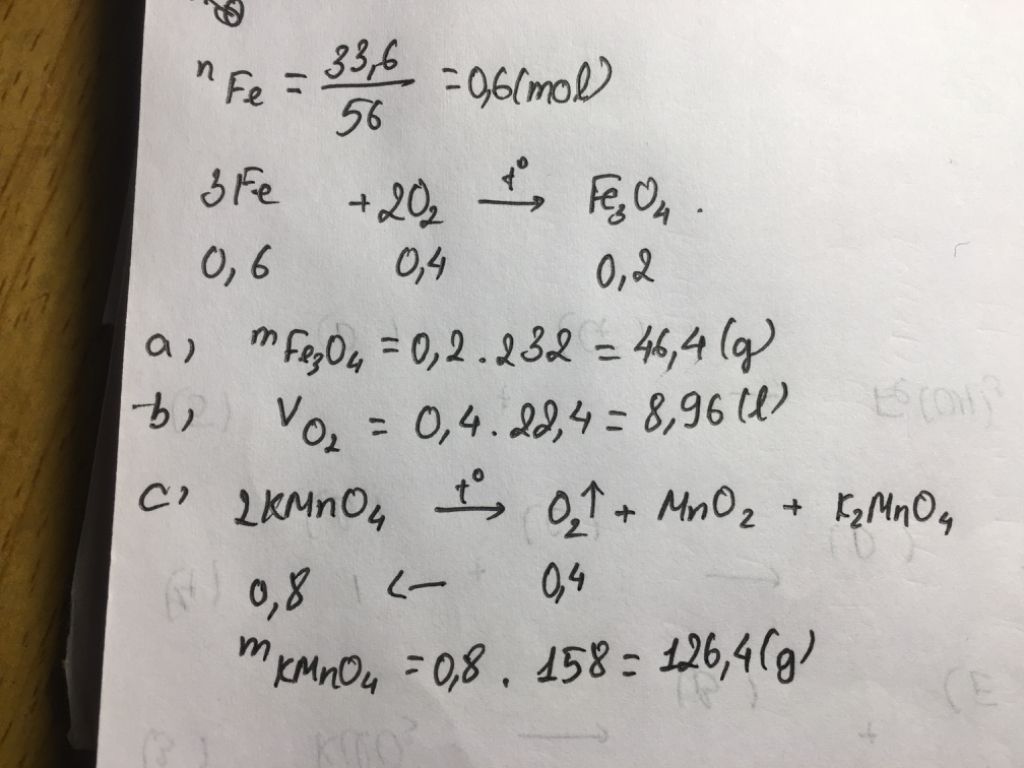 nFe = 33,6/56 = 0,6(mol)
3Fe + 2O₂ t°→ Fe₃O₄.
0,6 0,4 0,2
a) mFe₃O₄ = 0,2.232 = 46,4(g)
b) VO₂ = 0,4.22,4 = 8,96(l)
c) 2KMnO₄ t°→ O₂↑ + MnO₂ + K₂MnO₄
0,8 ← 0,4
mKMnO₄ = 0,8.158 = 126,4(g)